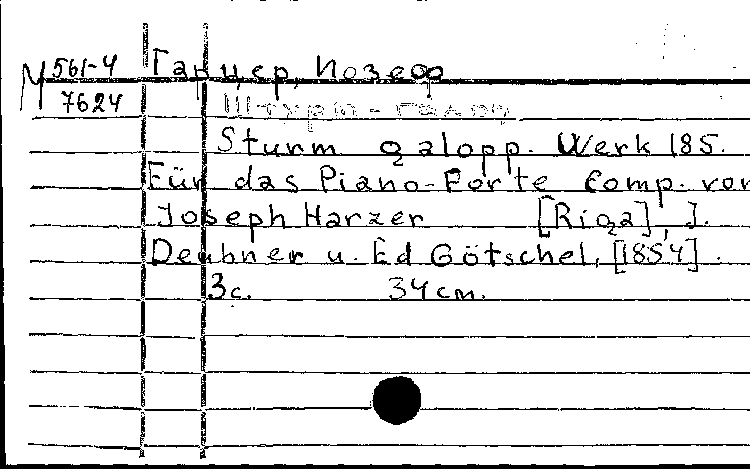 М 561-4 Гарцер, Йозеф
7624 Штурм - галоп
Sturm galopp. Werk 185.
Für das Piano-Forte Comp. von
Joseph Harzer [Riga], J.
Deubner u. Ed Götschel, [1854].
3c. 34 cm.